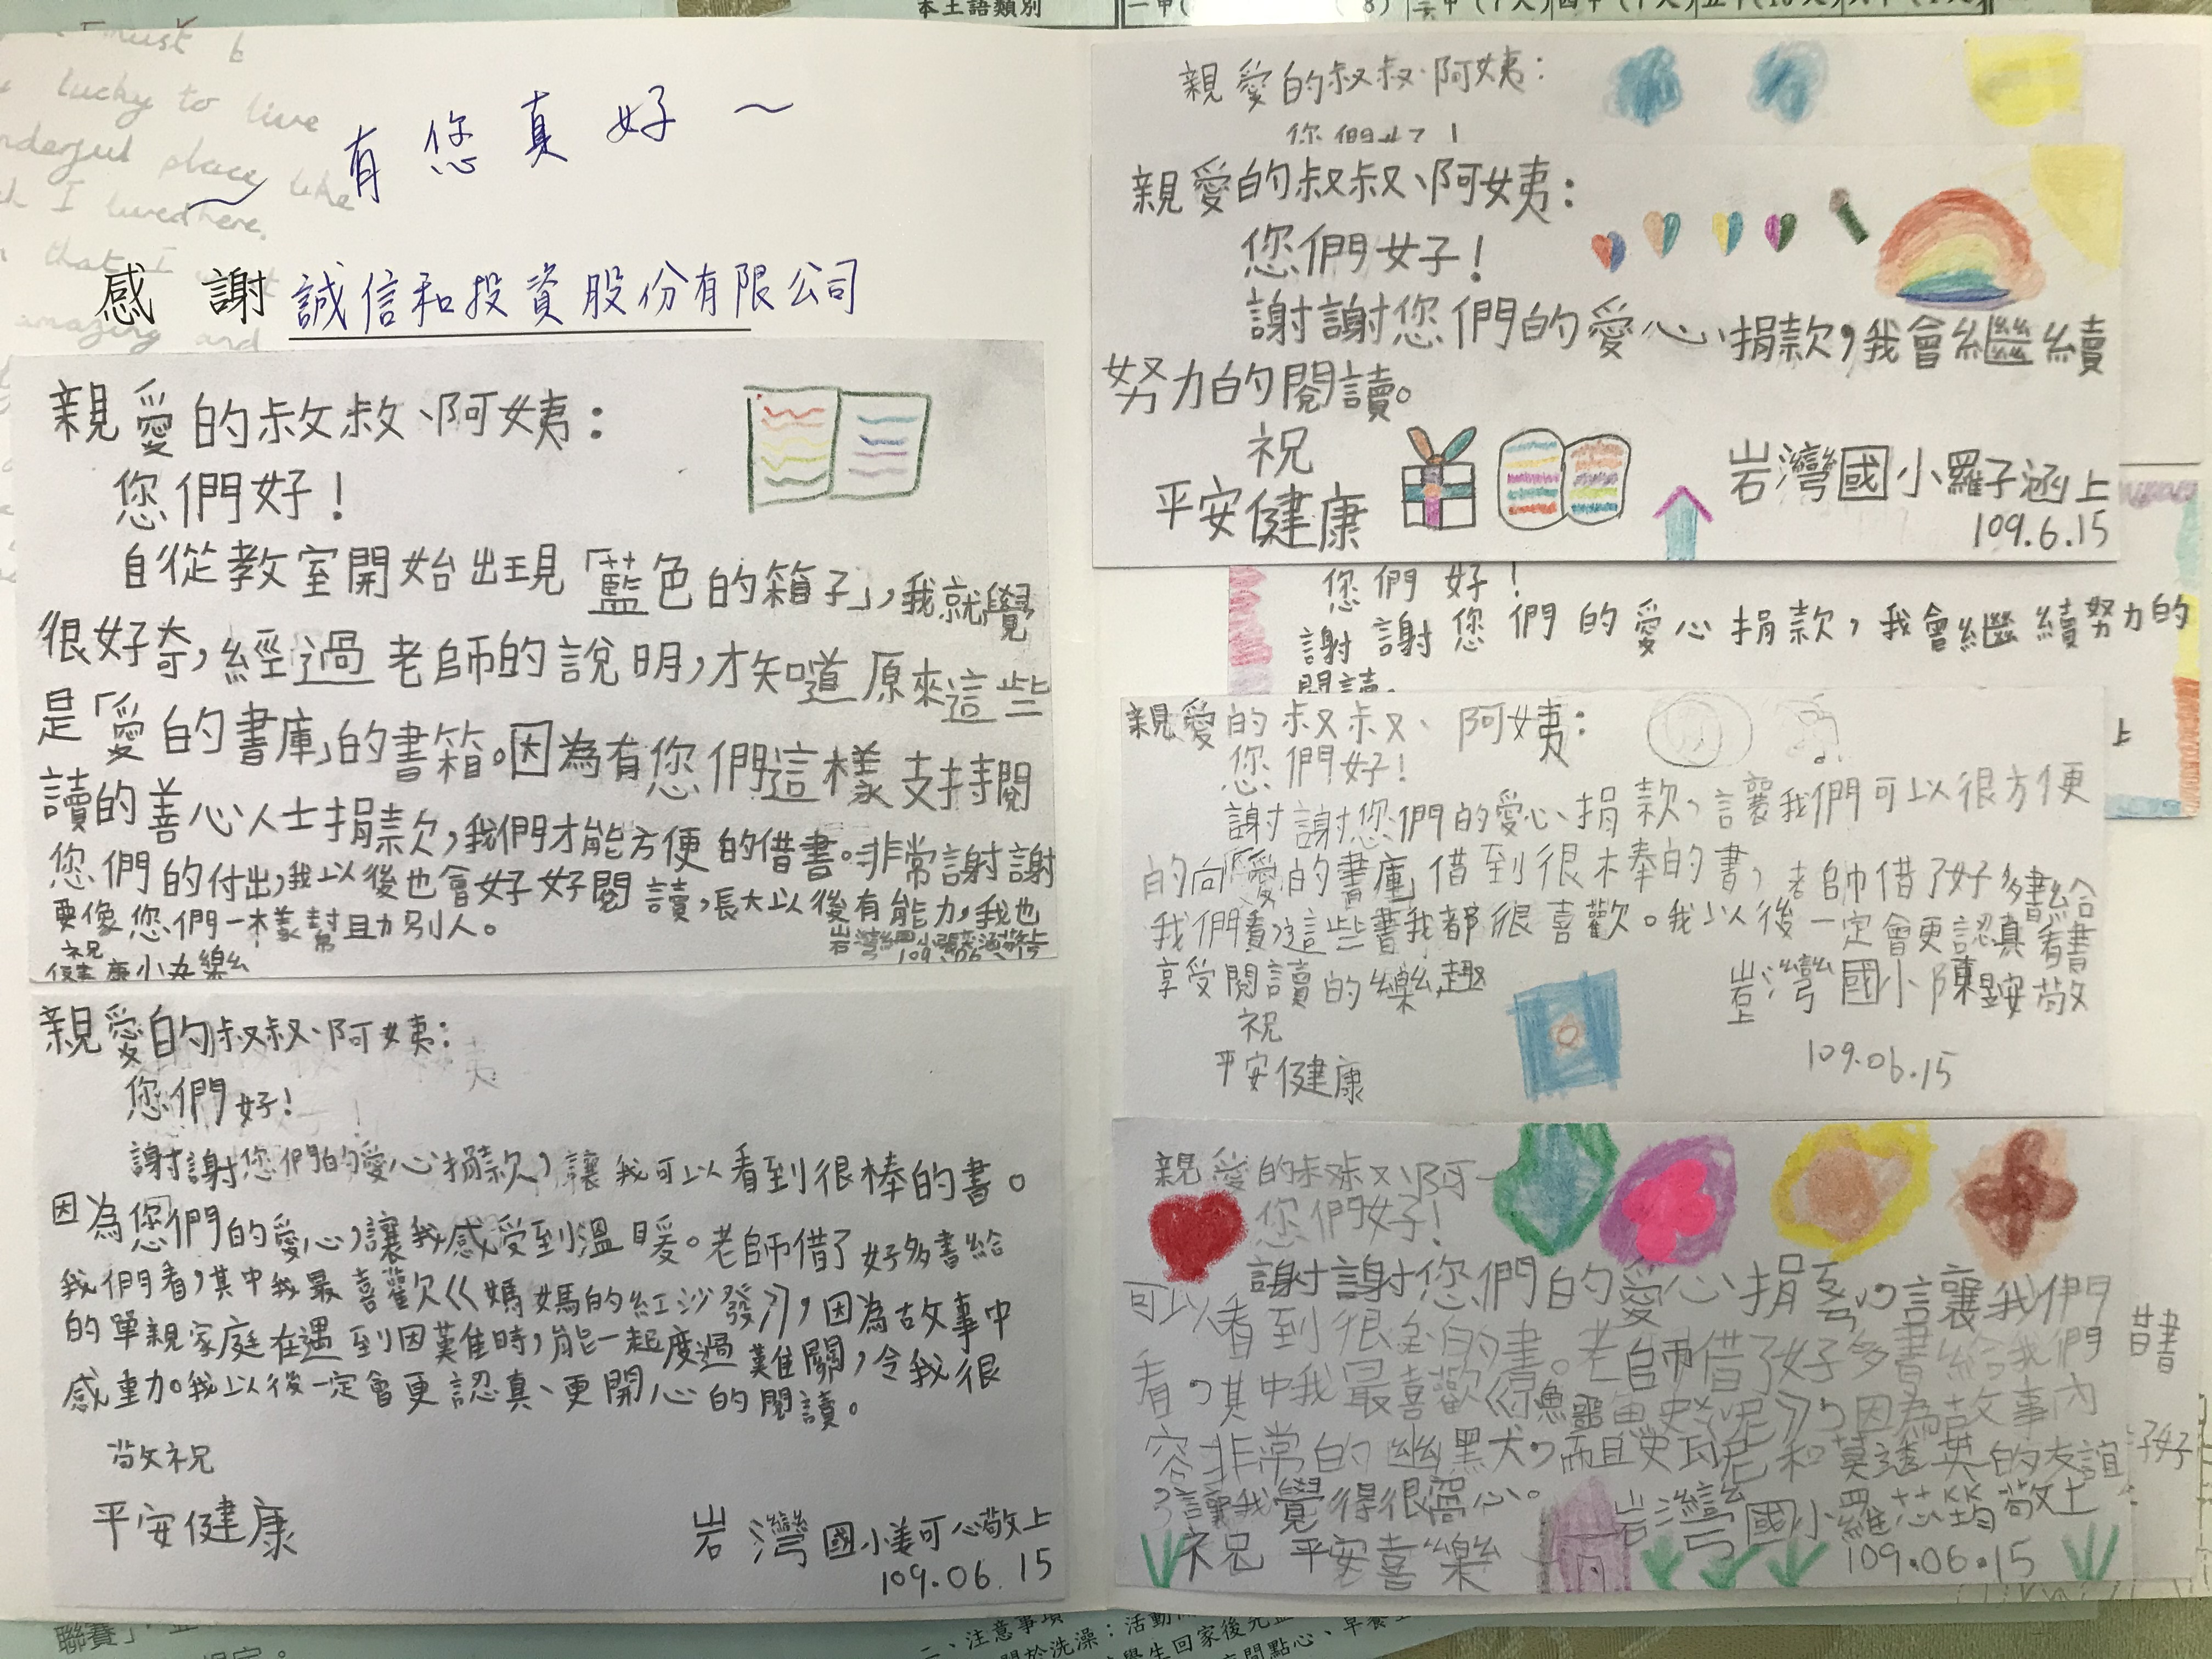 本土語類別
有您真好～
感謝 誠信和投資股份有限公司
親愛的叔叔、阿姨：
您們好！
自從教室開始出現「藍色的箱子」，我就覺
很好奇，經過老師的說明，才知道原來這些
是「愛的書庫」的書箱。因為有您們這樣支持閱
讀的善心人士捐款，我們才能方便的借書。非常謝謝
您們的付出，我以後也會好好閱讀，長大以後有能力，我也
要像您們一樣幫助別人。
祝
健康快樂
109.06.15
親愛的叔叔、阿姨：
您們好！
謝謝您們的愛心捐款，讓我可以看到很棒的書。
因為您們的愛心，讓我感受到溫暖。老師借了好多書給
我們看，其中我最喜歡《媽媽的紅沙發》，因為故事中
的單親家庭在遇到困難時，能一起度過難關，令我很
感動。我以後一定會更認真、更開心的閱讀。
敬祝
平安健康
岩灣國小姜可心敬上
109.06.15
親愛的叔叔、阿姨：
親愛的叔叔、阿姨：
您們好！
謝謝您們的愛心捐款，我會繼續
努力的閱讀。
祝
平安健康
岩灣國小羅子涵上
109.6.15
您們好！
謝謝您們的愛心捐款，我會繼續努力的
閱讀。
上
親愛的叔叔、阿姨：
您們好！
謝謝您們的愛心捐款，讓我們可以很方便
的向「愛的書庫」借到很棒的書，老師借了好多書給
我們看，這些書我都很喜歡。我以後一定會更認真看書
享受閱讀的樂趣
祝
平安健康
岩灣國小陳昱安敬
上
109.06.15
親愛的叔叔、阿
您們好！
謝謝您們的愛心捐款，讓我們
可以看到很多的書。老師借了好多書給我們
看，其中我最喜歡《鱷魚史瓦尼》，因為故事內
容非常的幽默，而且史瓦尼和莫透英的友誼
讓我覺得很窩心。
祝 平安喜樂
岩灣國小羅芯筠敬上
109.06.15